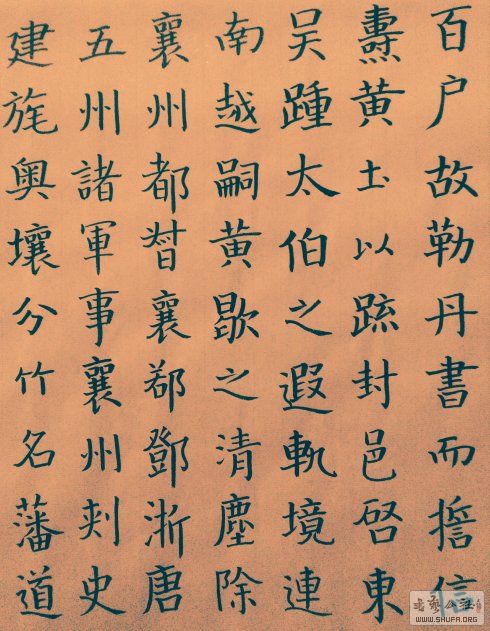 百户故勒丹書而擔信
燾黄土以疏封邑啓東
吴踵太伯之遐軌境連
南越嗣黄歇之清塵除
襄州都督襄鄀鄧淅唐
五州諸軍事襄州刺史
建旄奥壤分竹名藩道
WWW.SHUFA.ORG